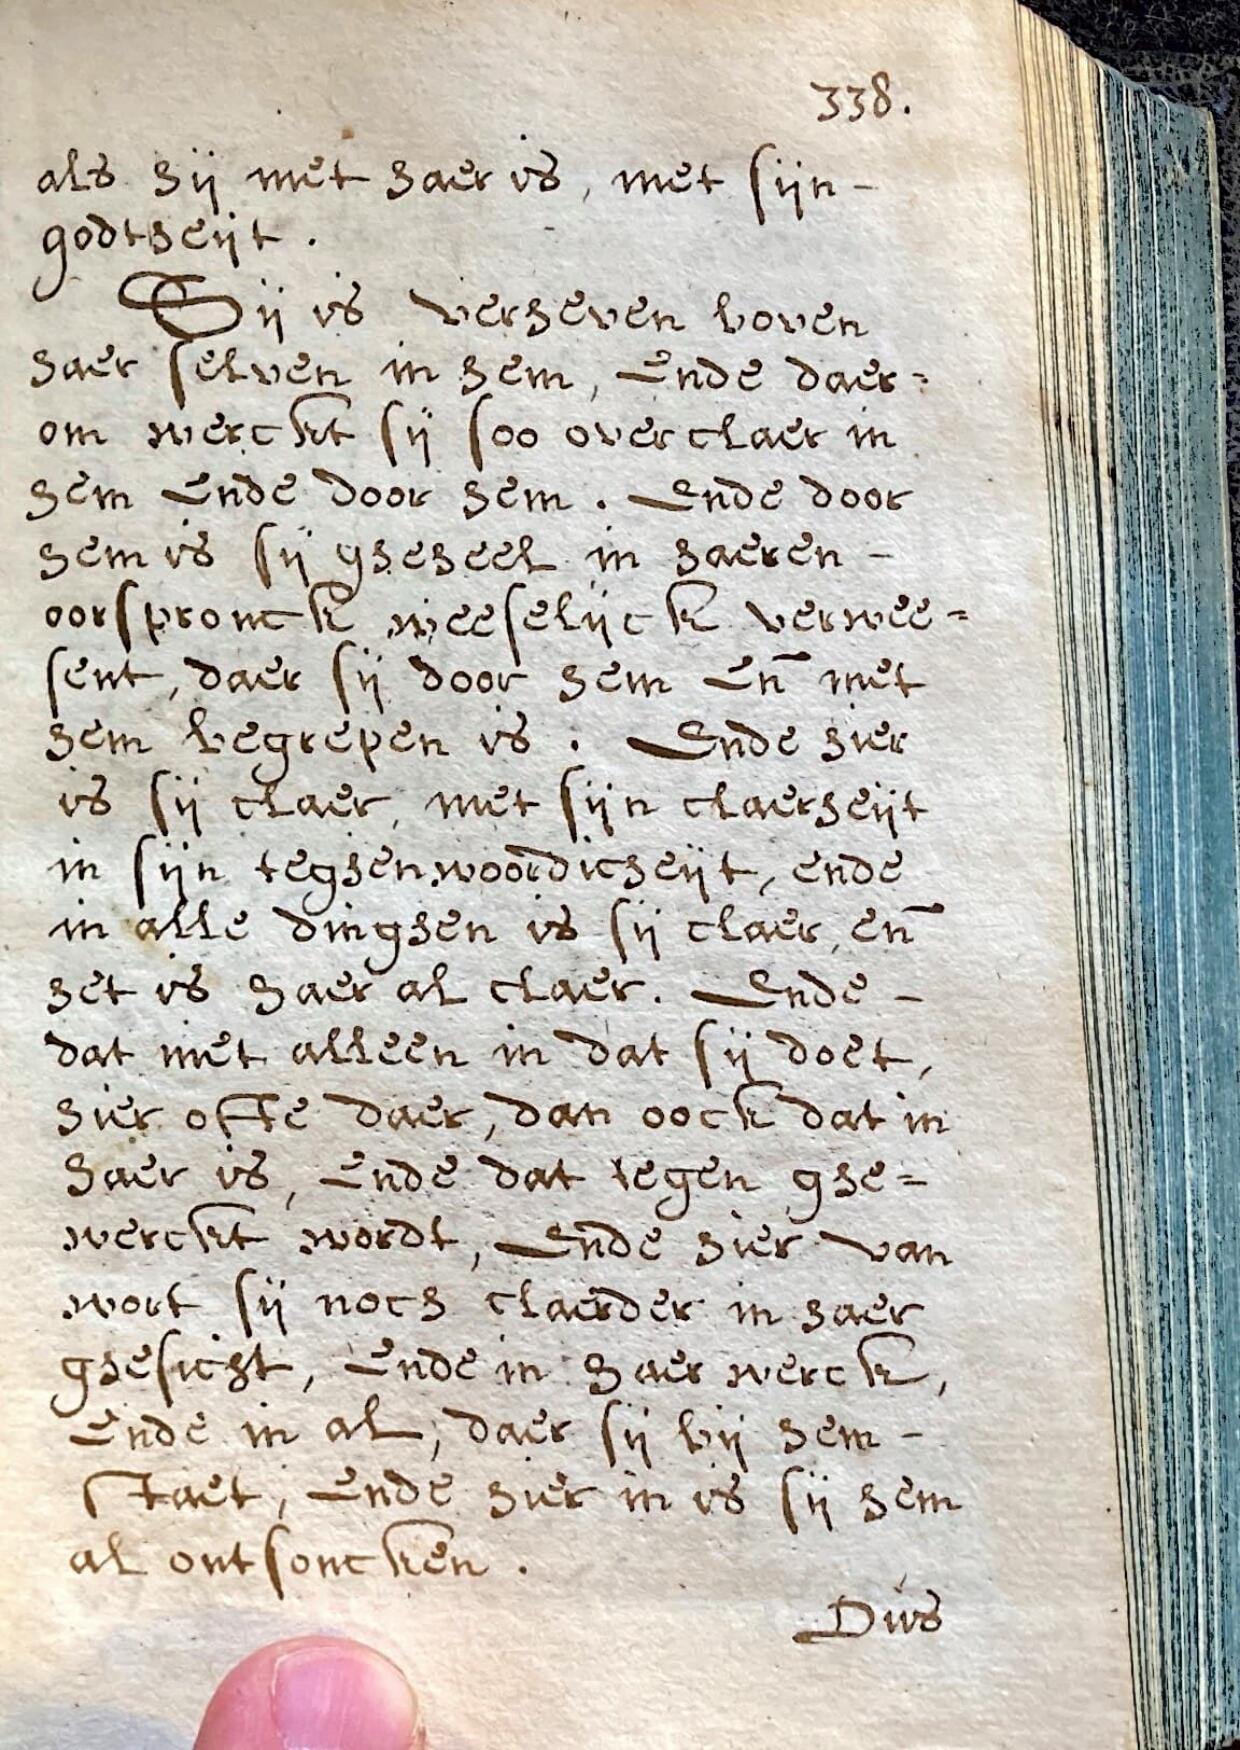 338.
als hij met haer is, met sijn-
godtheijt.
Sij is verheven boven
haer selven in hem, Ende daer=
om werckt sij soo overclaer in
hem Ende door hem. Ende door
hem is sij gheheel in haeren-
oorspronck weeselijck verwee=
sent, daer sij door hem En̄ met
hem begrepen is. Ende hier
is sij claer, met sijn claerheijt
in sijn teghenwoordicheijt, ende
in alle dinghen is sij claer, en̄
het is haer al claer. Ende-
dat niet alleen in dat sij doet,
hier ofte daer, dan oock dat in
haer is, Ende dat tegen ghe=
werckt wordt, Ende hier van
wort sij noch claerder in haer
ghesicht, Ende in haer werck,
Ende in al, daer sij bij hem-
staet, Ende hier in is sij hem
al ontsoncken.
Dus